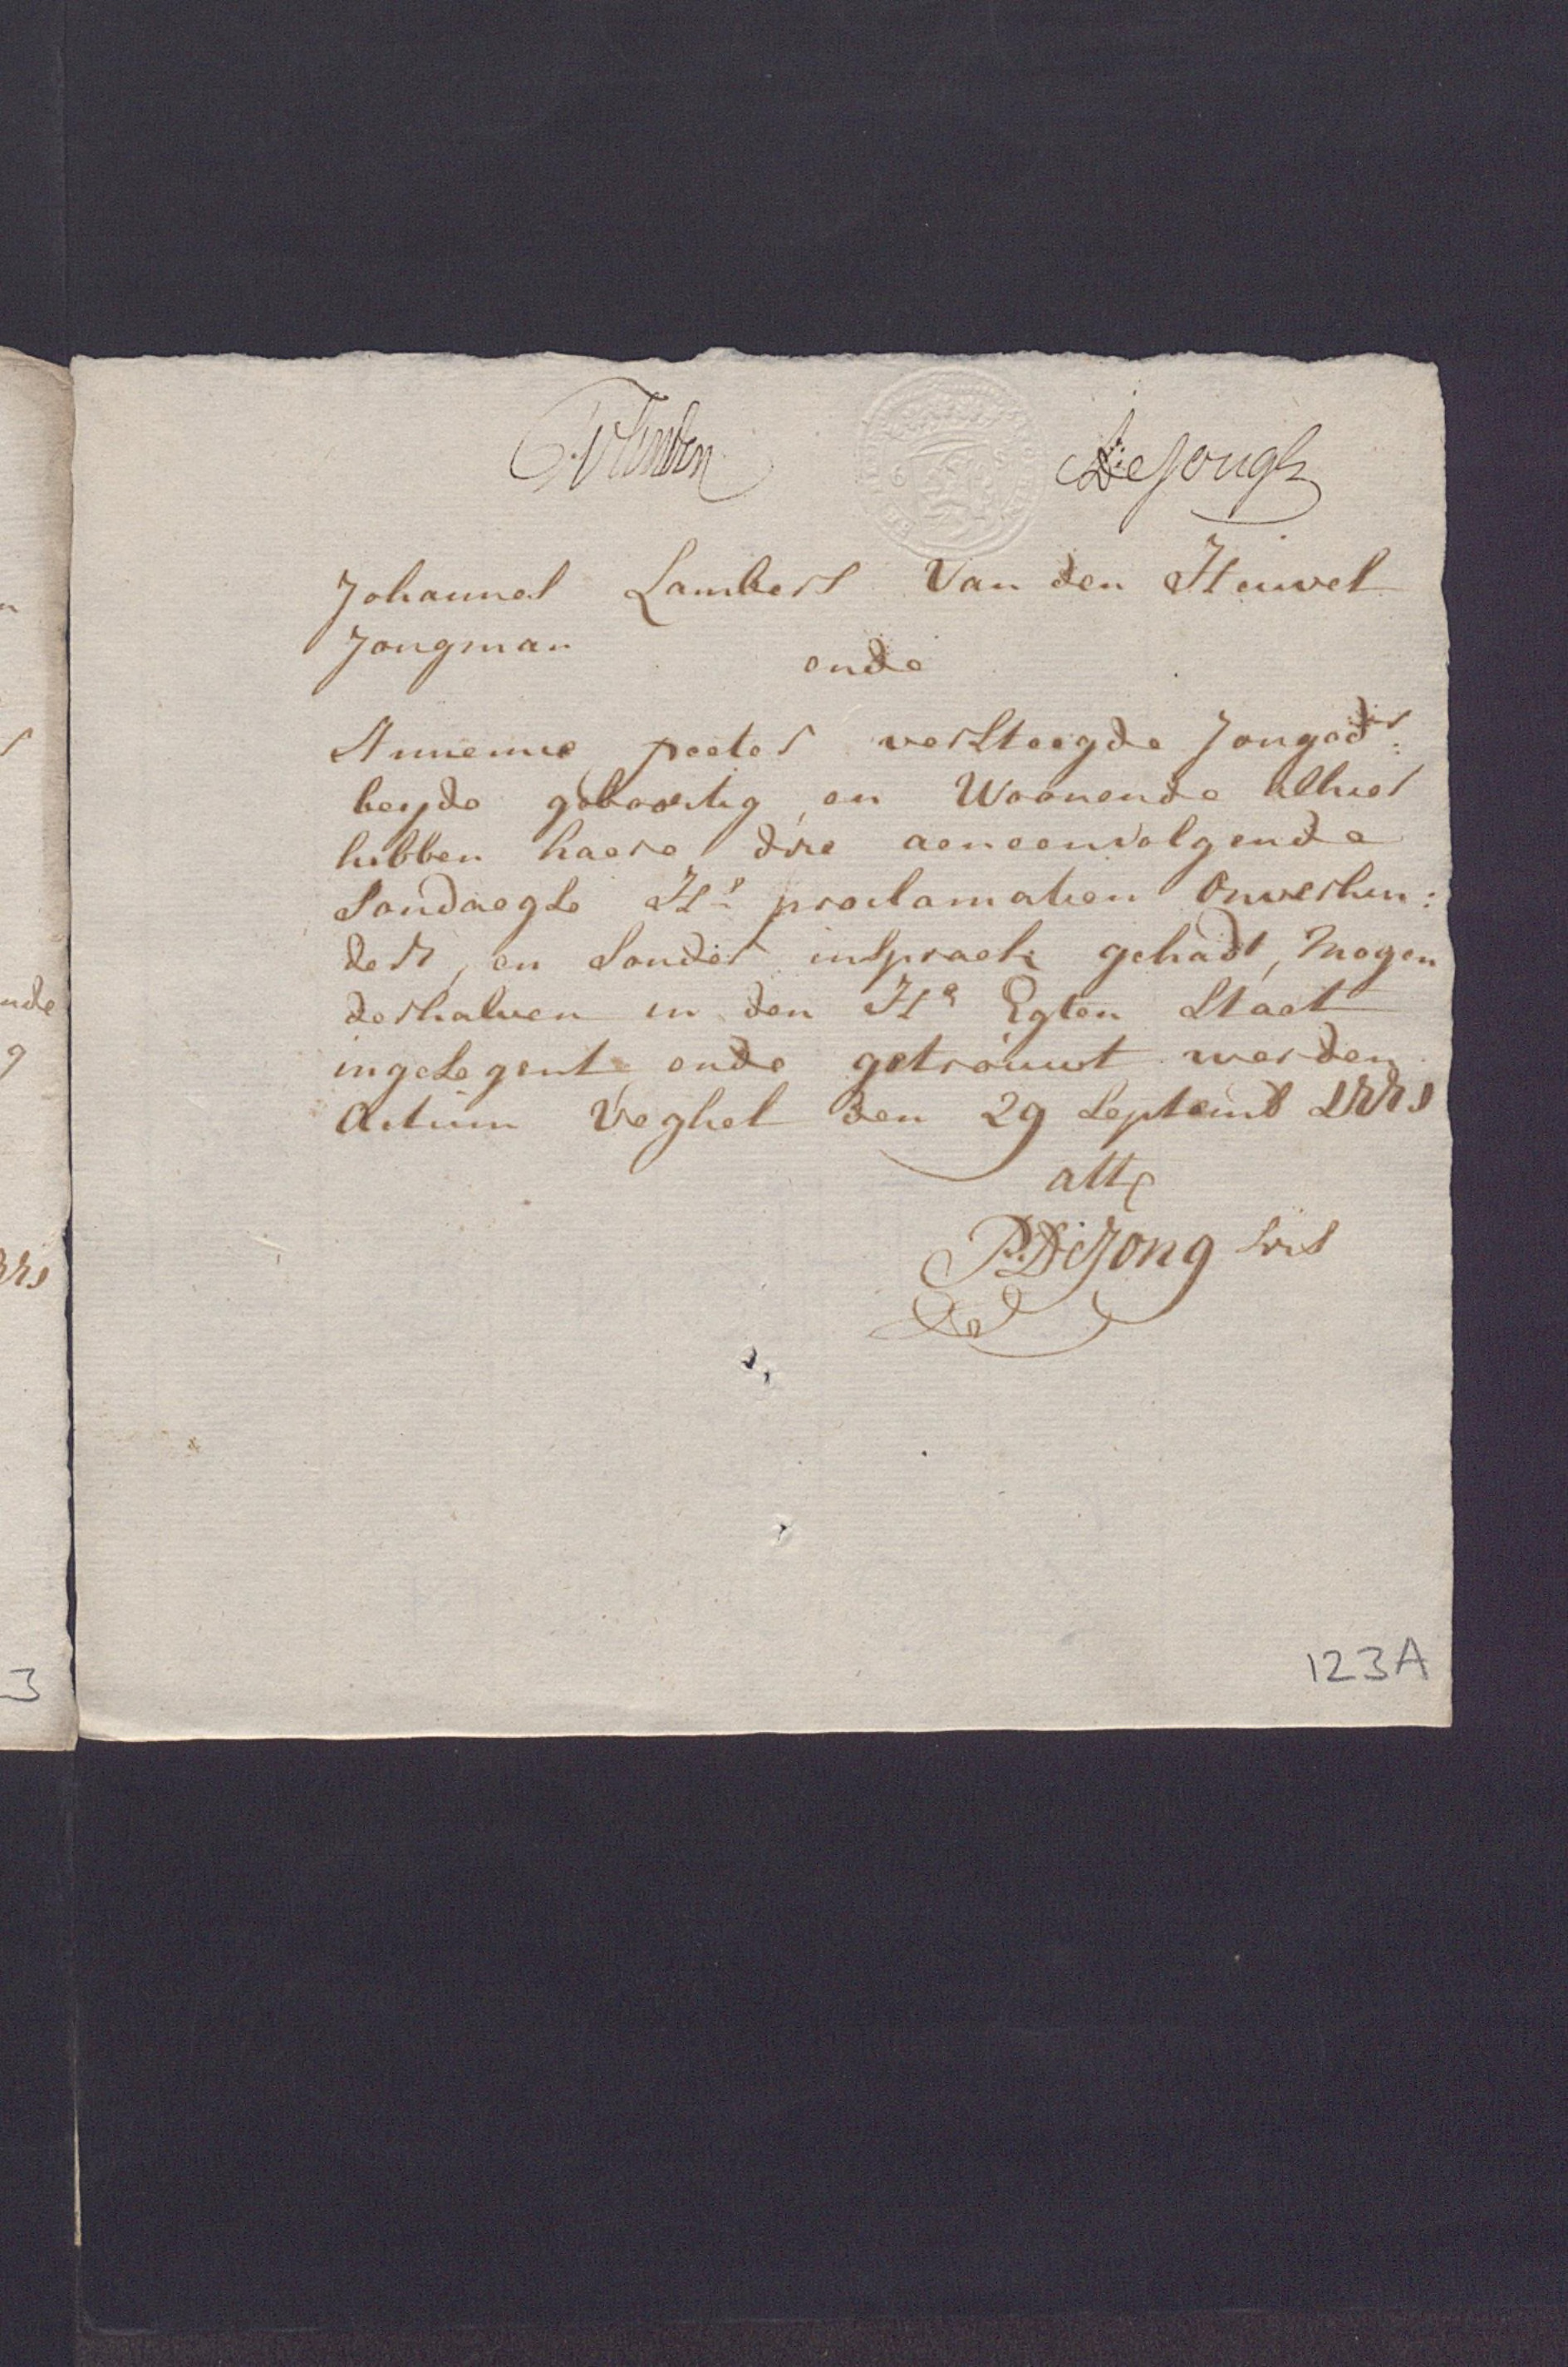 DeJongh
Johannes Lambers Van den Heuvel
Jongman
ende
Annemie peeter versteegde Jongedr:
beyde geboortig en Woonende alhier
hebben haere drie aeneenvolgende
Sondaegse Hs proclamatien Onverhin:
dert, en sonder inspraek gehadt, Mogen
derhalven in den He Egten Staet
ingesegent ende getrouwt werden
Actum Veghel den 29 Septemb 1771
atte
P: DeJong Srs
123A
nde
g
3